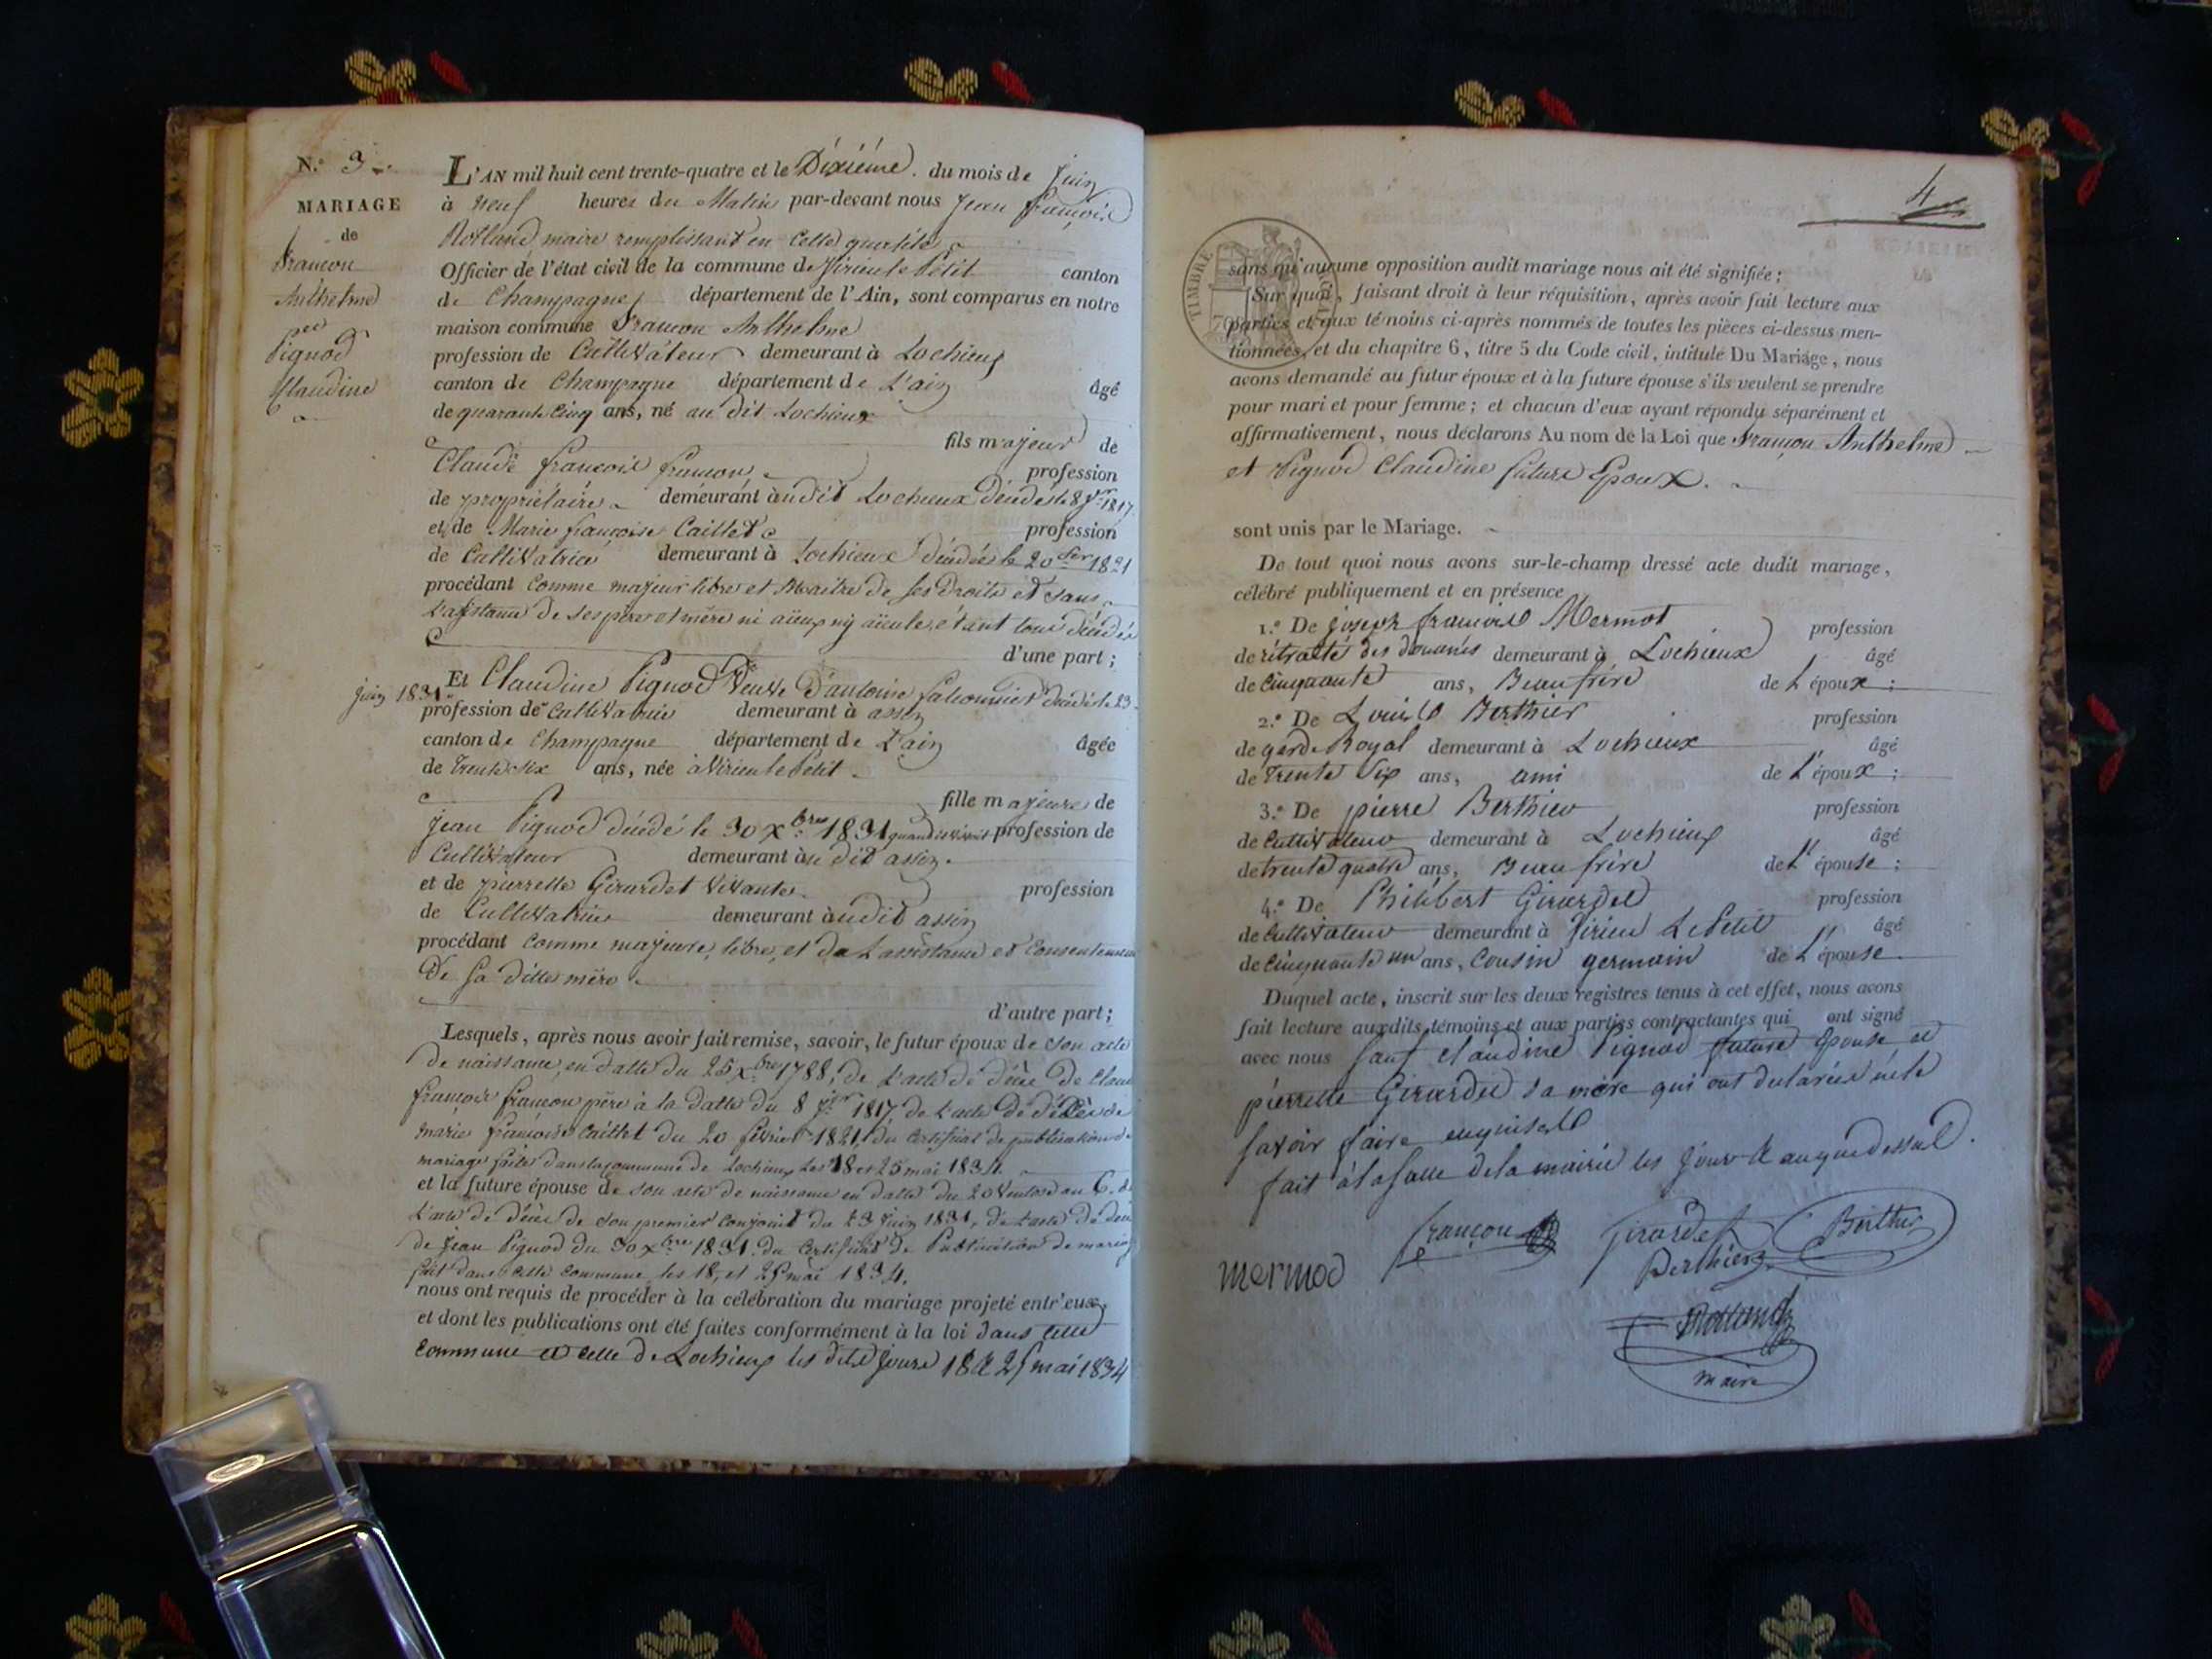 N.° 3
MARIAGE
de
françon
Anthelme
Pignod
Claudine
L'AN mil huit cent trente-quatre et le Dixiéme. du mois de juin
à neuf heures du Matin par-devant nous jean françois
Rolland maire remplissant en cette qualité
Officier de l'état civil de la commune de Virieu le Petit canton
de Champagne département de l'Ain, sont comparus en notre
maison commune françon Anthelme
profession de Cultivateur demeurant à Lochieux
canton de Champagne département de L'ain âgé
de quarante cinq ans, né au dit Lochieux
fils majeur de
Claude françois françon profession
de propriétaire demeurant audit Lochieux décédé le 8 7bre 1817
et de Marie françoise Caillet profession
de Cultivatrice demeurant à Lochieux décédée le 20 fer 1821
procédant comme majeur libre et Maitre de ses droits et sans
L'assistance de ses père et mère ni aïeux ny aïeule étant tous décédés
d'une part ;
Et Claudine Pignod Veuve D'antoine décédé le 23
juin 1831
profession de Cultivatrice demeurant à assin
canton de Champagne département de L'ain âgée
de Trente six ans, née à Virieu le Petit
fille majeure de
Jean Pignod décédé le 30 Xbre 1831 quand il vivoit profession de
Cultivateur demeurant au dit assin.
et de pierrette Girardet vivante profession
de Cultivatrice demeurant audit assin
procédant comme majeure, libre, et de L'assistance et Consentement
De sa ditte mère
d'autre part ;
Lesquels, après nous avoir fait remise, savoir, le futur époux de son acte
de naissance en datte du 25 Xbre 1788, de L'acte de décès de Claude
françois françon père à la datte du 8 7bre 1817, de L'acte de décès de
marie françoise Caillet du 20 février 1821, du Certificat de publication de
mariage faite dans la commune de Lochieux Les 18 et 25 mai 1834.
et la future épouse de son acte de naissance en datte du 20 Ventose an 6. de
L'acte de décès de son premier conjoint du 23 juin 1831, de L'acte de décès
de Jean Pignod du 30 Xbre 1831. du Certificat de Publication de mariage
fait dans cette Commune les 18, et 25 mai 1834.
nous ont requis de procéder à la célébration du mariage projeté entr'eux,
et dont les publications ont été faites conformément à la loi dans cette
Commune et celle de Lochieux les dits jours 18 & 25 mai 1834
4
TIMBRE ROYAL
70
sans qu'aucune opposition audit mariage nous ait été signifiée ;
Sur quoi, faisant droit à leur réquisition, après avoir fait lecture aux
parties et aux témoins ci-après nommés de toutes les pièces ci-dessus men-
tionnées, et du chapitre 6, titre 5 du Code civil, intitulé Du Mariage, nous
avons demandé au futur époux et à la future épouse s'ils veulent se prendre
pour mari et pour femme ; et chacun d'eux ayant répondu séparément et
affirmativement, nous déclarons Au nom de la Loi que françon Anthelme
et Pignod Claudine future Epoux.
sont unis par le Mariage.
De tout quoi nous avons sur-le-champ dressé acte dudit mariage,
célébré publiquement et en présence
1.° De joseph françois Mermot profession
de rétraité des douanes demeurant à Lochieux âgé
de Cinquante ans, Beau frère de L'époux ;
2.° De Louis Berthier profession
de garde Royal demeurant à Lochieux âgé
de Trente Six ans, ami de L'époux ;
3.° De pierre Berthier profession
de Cultivateur demeurant à Lochieux âgé
de trente quatre ans, Beau frère de L'épouse ;
4.° De Philibert Girardet profession
de Cultivateur demeurant à Virieu Le Petit âgé
de Cinquante un ans, Cousin germain de L'épouse.
Duquel acte, inscrit sur les deux registres tenus à cet effet, nous avons
fait lecture auxdits témoins et aux parties contractantes qui ont signé
avec nous sauf claudine Pignod future Epouse et
pierrette Girardet sa mère qui ont déclarées ne le
savoir faire enquises
fait à la salle de la mairie les jour & an que dessus.
françon Girardet Berthier
mermod Berthier
Rolland
maire